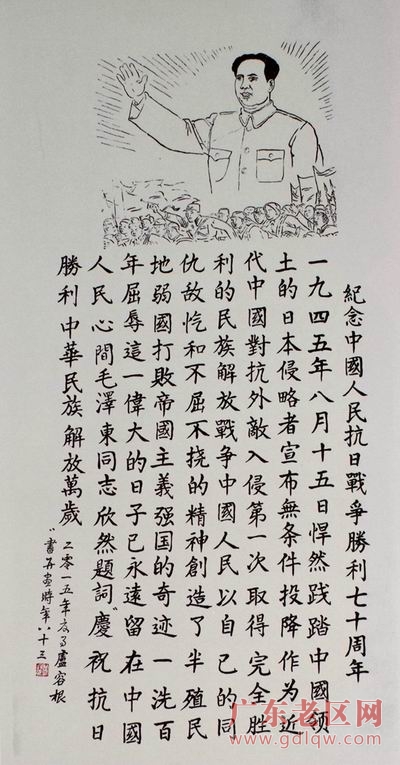 紀念中國人民抗日戰爭勝利七十周年
一九四五年八月十五日悍然践踏中國领
土的日本侵略者宣布無条件投降作为近
代中國對抗外敵入侵第一次取得完全胜
利的民族解放戰争中國人民以自己的同
仇敵忾和不屈不挠的精神創造了半殖民
地弱國打敗帝國主義强国的奇迹一洗百
年屈辱這一偉大的日子已永遠留在中國
人民心間毛澤東同志欣然題詞“慶祝抗日
勝利中華民族解放萬歲”
二零一五年 盧容根
書并画時年八十三
广东老区网
www.gdlqw.com